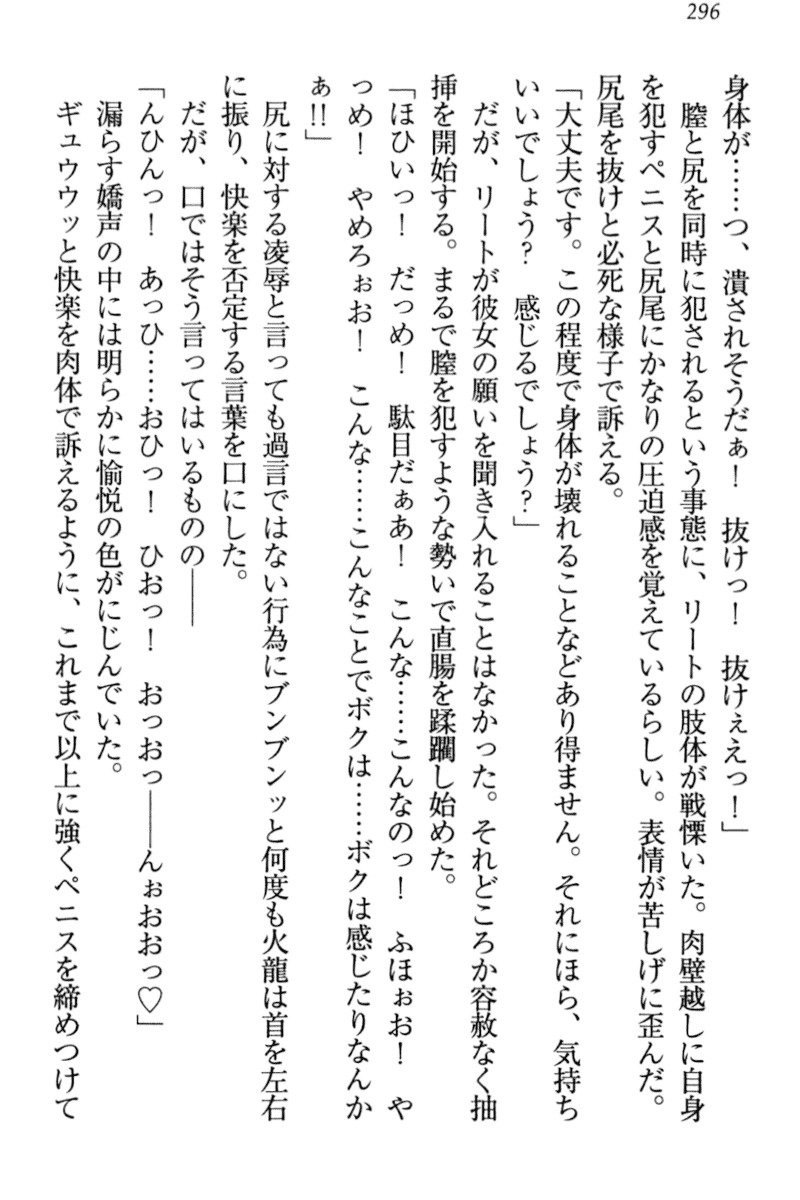 296
身体が……つ、潰されそうだぁ！　抜けっ！　抜けぇえっ！」
　膣と尻を同時に犯されるという事態に、リートの肢体が戦慄いた。肉壁越しに自身
を犯すペニスと尻尾にかなりの圧迫感を覚えているらしい。表情が苦しげに歪んだ。
尻尾を抜けと必死な様子で訴える。
「大丈夫です。この程度で身体が壊れることなどあり得ません。それにほら、気持ち
いいでしょう？　感じるでしょう？」
　だが、リートが彼女の願いを聞き入れることはなかった。それどころか容赦なく抽
挿を開始する。まるで膣を犯すような勢いで直腸を蹂躙し始めた。
「ほひいっ！　だっめ！　駄目だぁあ！　こんな……こんなのっ！　ふほぉお！　や
っめ！　やめろぉお！　こんな……こんなことでボクは……ボクは感じたりなんか
ぁ!!」
　尻に対する凌辱と言っても過言ではない行為にブンブンッと何度も火龍は首を左右
に振り、快楽を否定する言葉を口にした。
　だが、口ではそう言ってはいるものの――
「んひんっ！　あっひ……おひっ！　ひおっ！　おっおっ――んぉおおっ♡」
　漏らす嬌声の中には明らかに愉悦の色がにじんでいた。
　ギュウウッと快楽を肉体で訴えるように、これまで以上に強くペニスを締めつけて